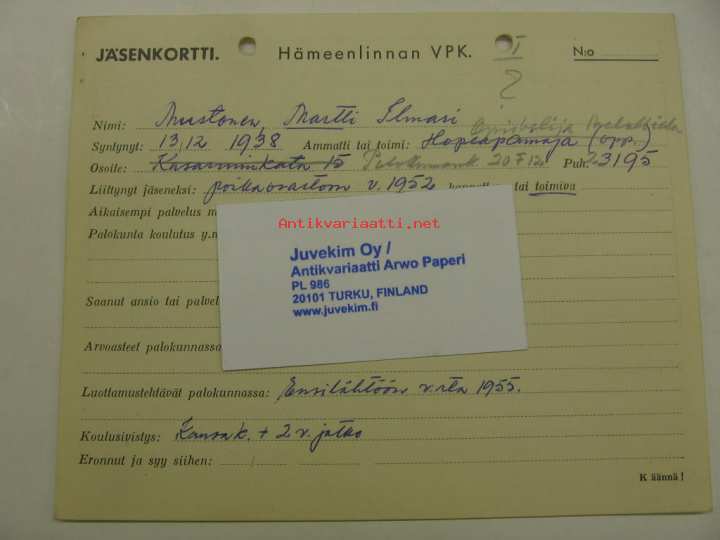 JÄSENKORTTI. Hämeenlinnan VPK. I N:o
?
Nimi: Mustonen, Martti Ilmari
Syntynyt: 13/12 1938 Ammatti tai toimi: Hopeapamaja (opp.)
Osoite: Kasarminkatu 15 20 F 12 Puh. 23195
Liittynyt jäseneksi: poikaosastoon v. 1952 tai toimiva
Aikaisempi palvelus
Antikvariaatti.net
Palokunta koulutus y.m
Juvekim Oy /
Antikvariaatti Arwo Paperi
PL 986
20101 TURKU, FINLAND
www.juvekim.fi
Saanut ansio tai palvel
Arvoasteet palokunnassa
Luottamustehtävät palokunnassa: Ensilähtöön v:sta 1955.
Koulusivistys: Kansak. + 2 v. jatko
Eronnut ja syy siihen:
Käännä!